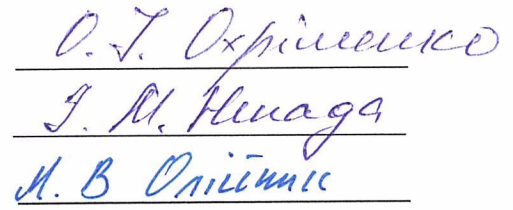 О. І. Охріменко
І. М. Ненада
М. В Олійник